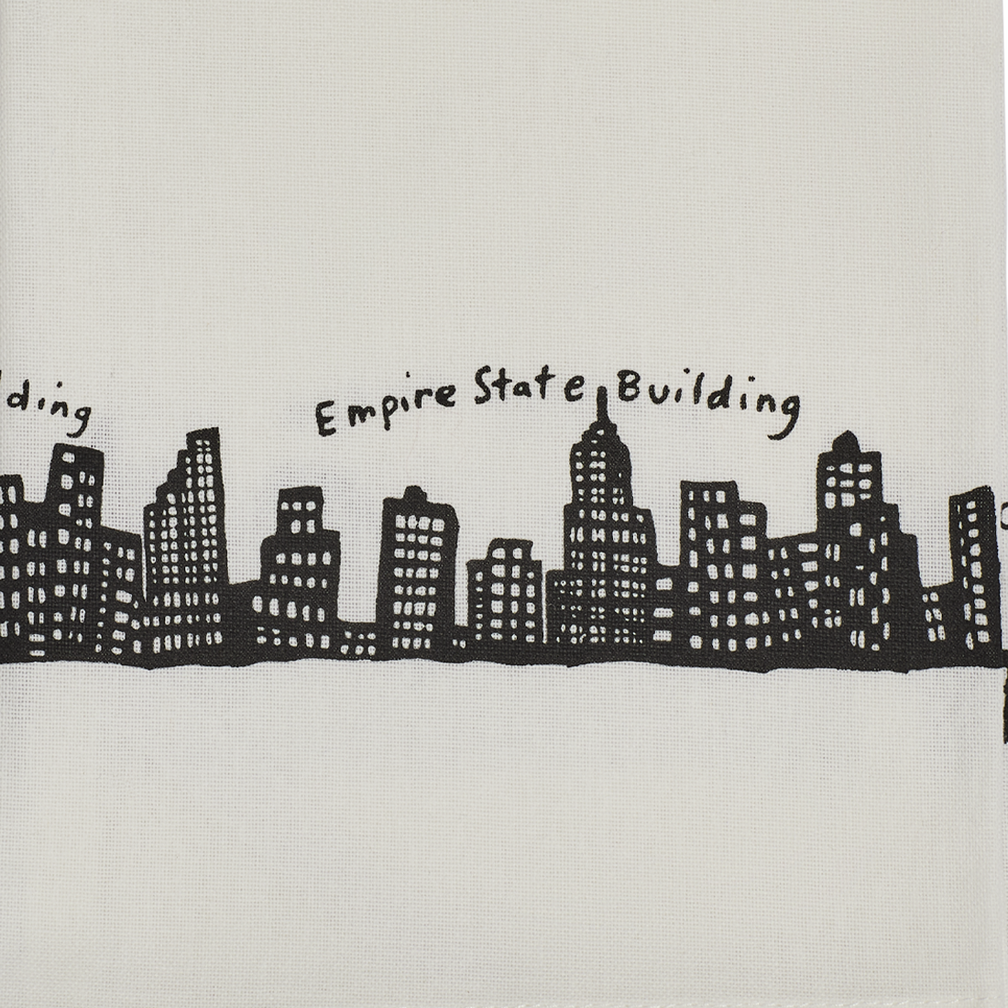 ding
Empire State Building